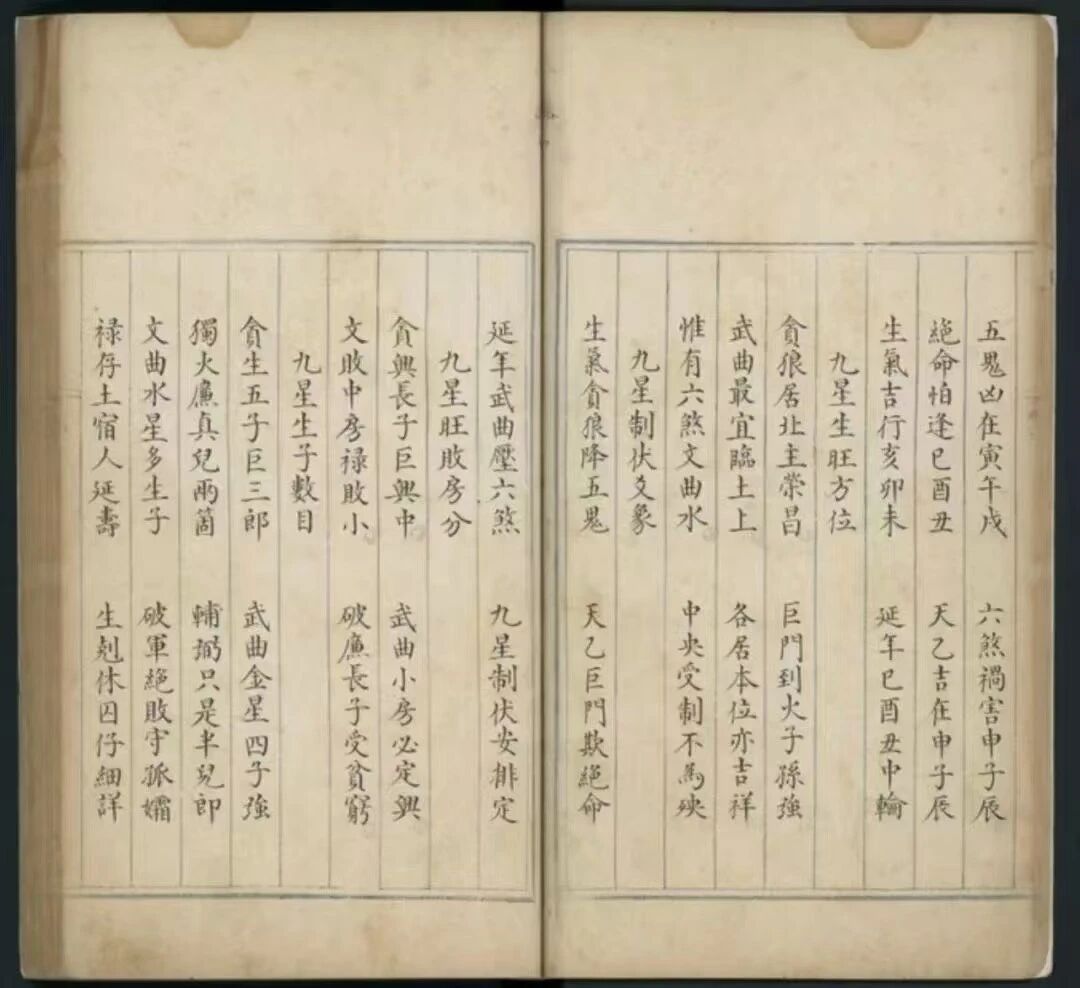 五鬼凶在寅午戌　六煞禍害申子辰
絕命怕逢巳酉丑　天乙吉在申子辰
生氣吉行亥卯未　延年巳酉丑中輪
九星生旺方位
貪狼居北主榮昌　巨門到火子孫強
武曲最宜臨土上　各居本位亦吉祥
惟有六煞文曲水　中央受制不為殃
九星制伏爻象
生氣貪狼降五鬼　天乙巨門欺絕命
延年武曲壓六煞　九星制伏安排定
九星旺敗房分
貪興長子巨興中　武曲小房必定興
文敗中房祿敗小　破廉長子受貧窮
九星生子數目
貪生五子巨三郎　武曲金星四子強
獨火廉貞兒兩箇　輔弼只是半兒郎
文曲水星多生子　破軍絕敗守孤孀
祿存土宿人延壽　生剋休囚仔細詳